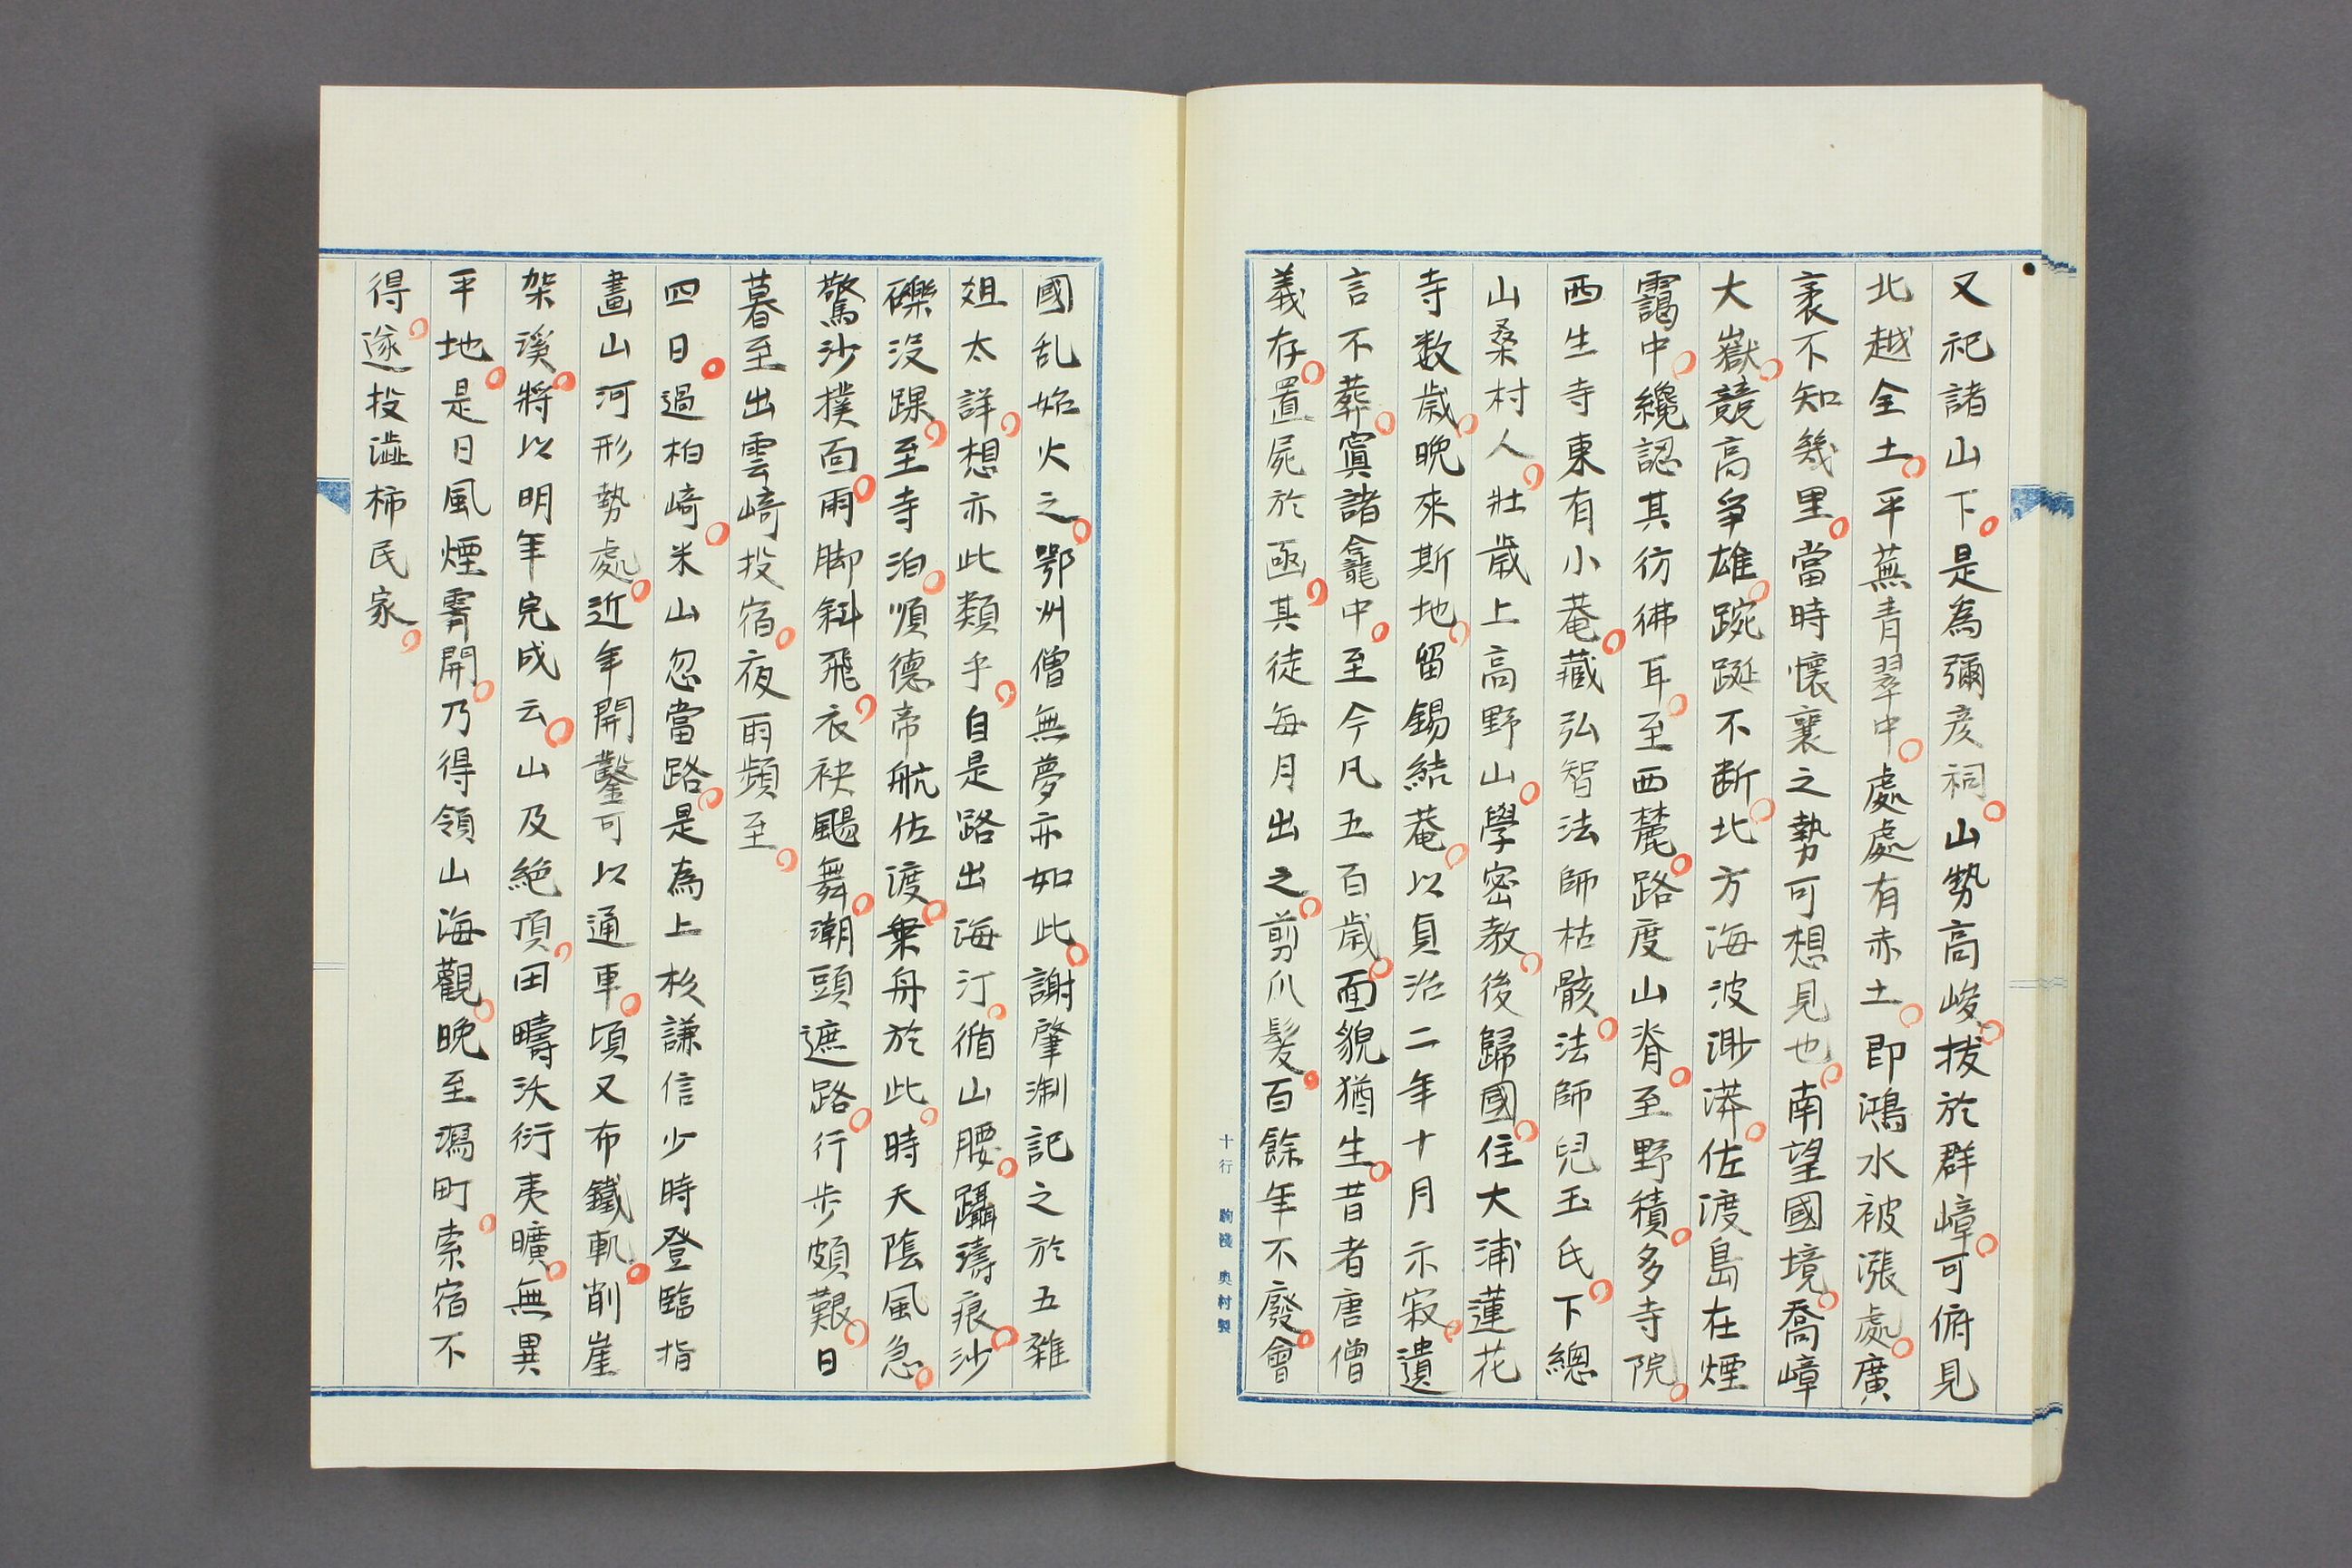 又祀諸山下。是為彌彦祠。山勢高峻。拔於群嶂。可俯見
北越全土。平蕪青翠中。處處有赤土。即鴻水被漲處。廣
袤不知幾里。當時懷襄之勢可想見也。南望國境。喬嶂
大嶽。競高爭雄。踠蜒不断。北方海波渺漭。佐渡島在煙
靄中。纔認其彷彿耳。至西麓。路度山脊。至野積。多寺院。
西生寺東有小菴。藏弘智法師枯骸。法師兒玉氏。下總
山桑村人。壯歲上高野山。學密教。後歸國。住大浦蓮花
寺数歲。晚來斯地。留錫結菴。以貞治二年十月示寂。遺
言不葬。寘諸龕中。至今凡五百歲。面貌猶生。昔者唐僧
義存。置屍於函。其徒每月出之。剪爪髮。百餘年不廢。會
國乱始火之。鄂州僧無夢亦如此。謝肇淛記之於五雜
俎太詳。想亦此類乎。自是路出海汀。循山腰。躡濤痕。沙
礫沒踝。至寺泊。順德帝航佐渡。乗舟於此。時天陰風急。
驚沙撲面。雨脚斜飛。衣袂颺舞。潮頭遮路。行步頗艱。日
暮至出雲﨑投宿。夜雨頻至。
四日。過柏﨑。米山忽當路。是為上杉謙信少時登臨指
畫山河形勢處。近年開鑿可以通車。頃又布鐵軌。削崖
架溪。將以明年完成云。山及絶頂。田疇沃衍夷曠。無異
平地。是日風煙霽開。乃得領山海觀。晚至潟町。索宿不
得。遂投澁柿民家。
十行 駒後 奥村製